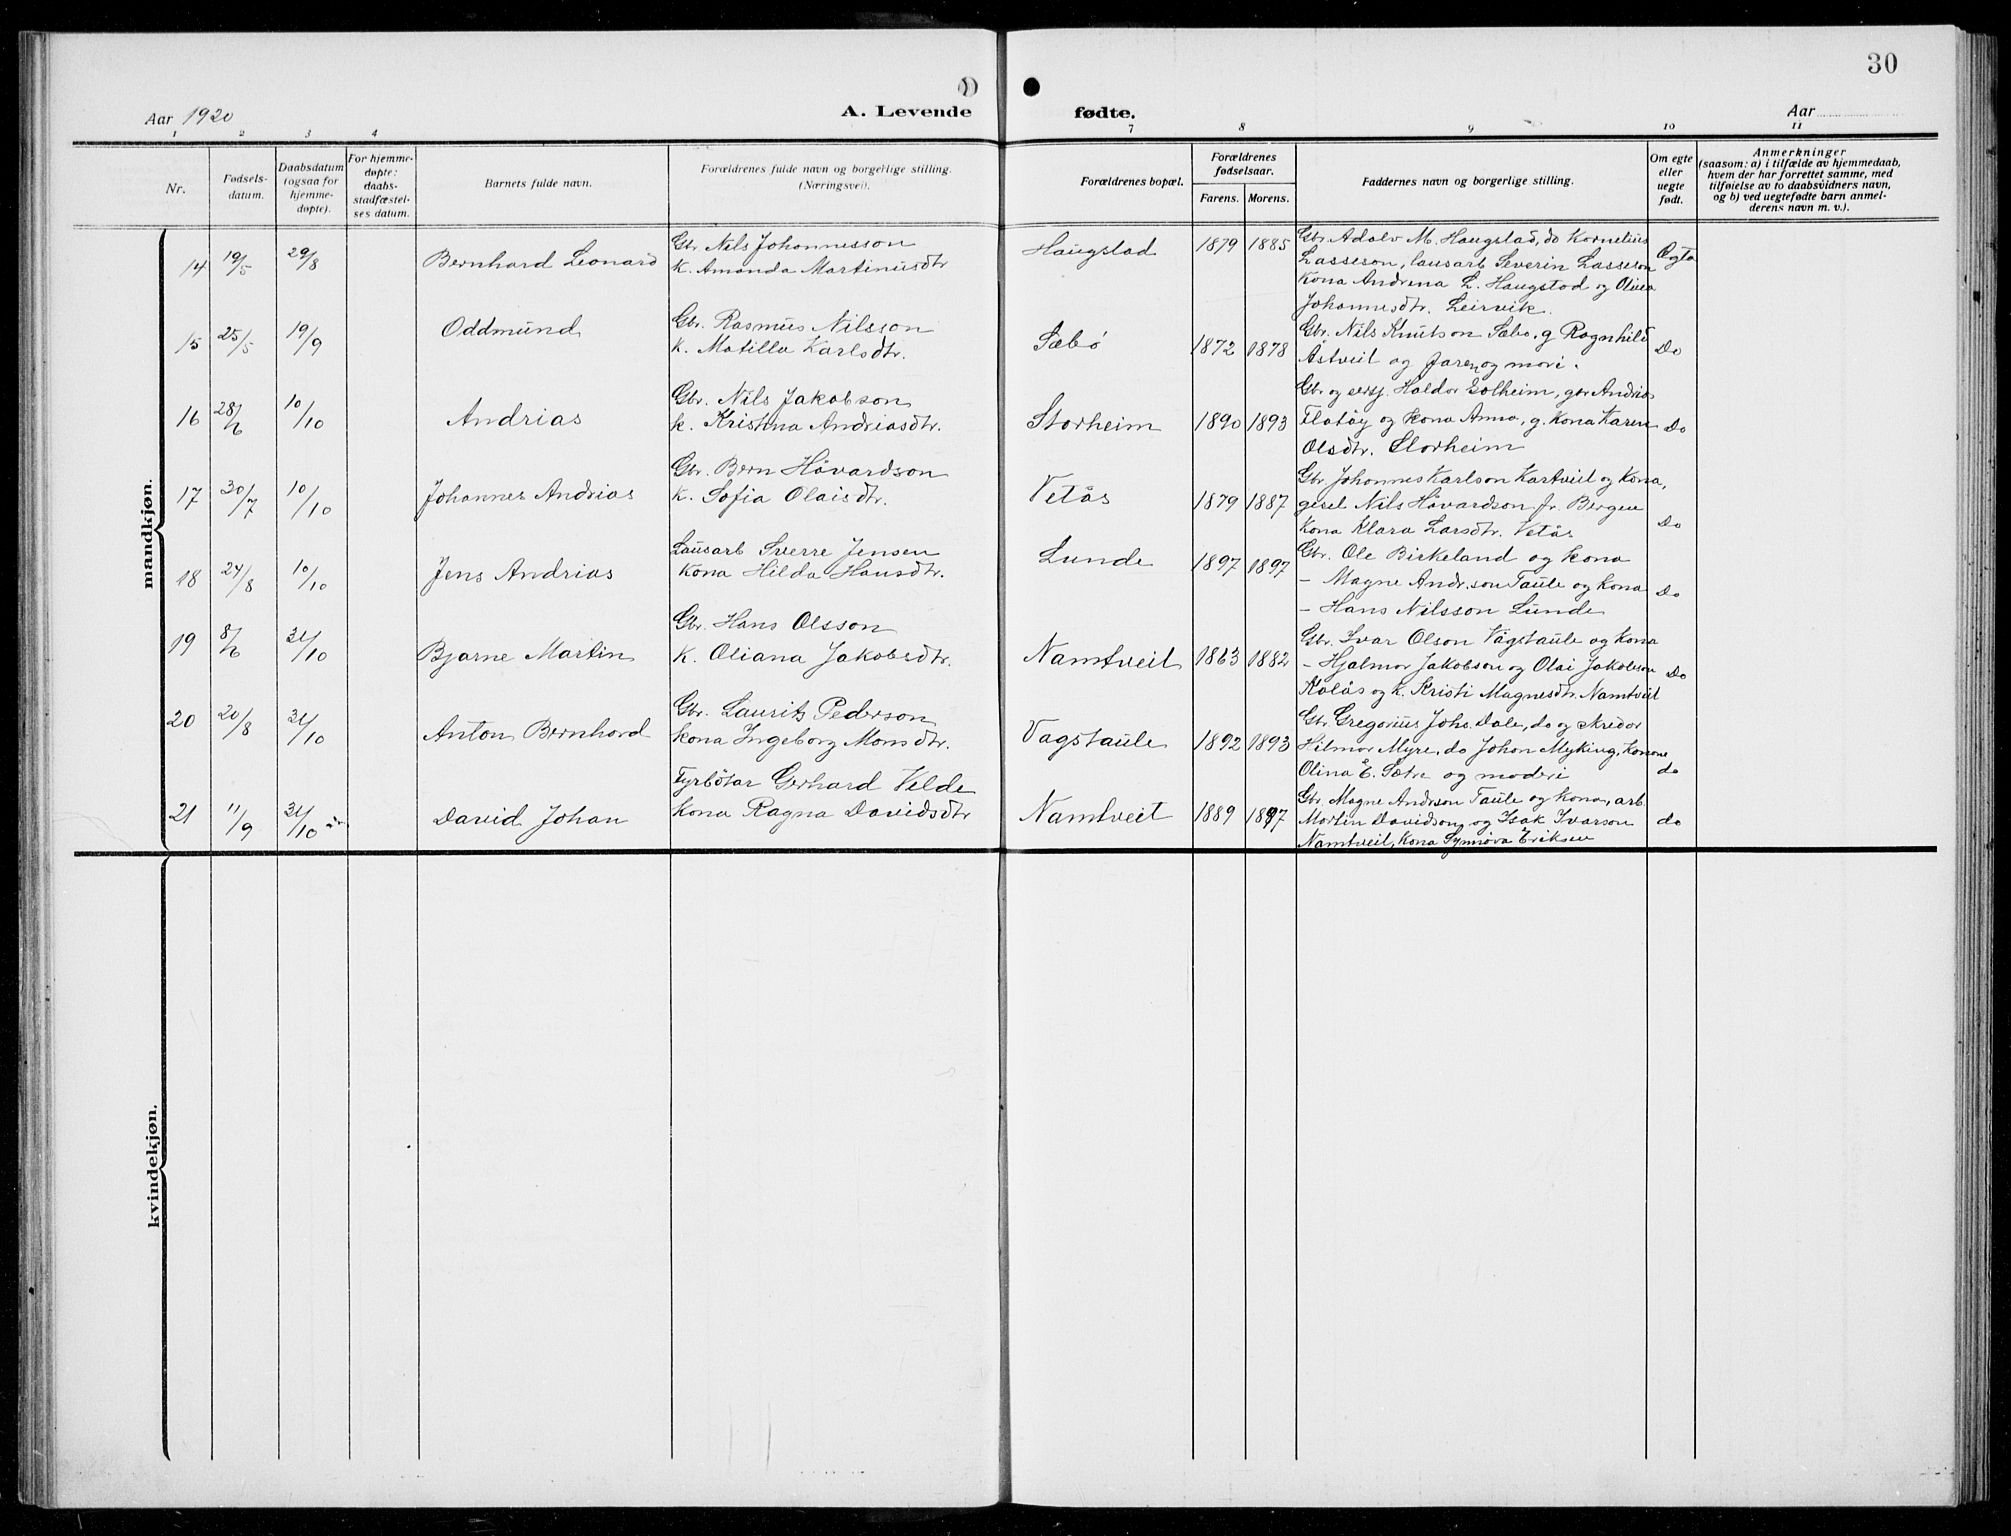 30
Aar 1920
A. Levende
fødte.
Aar
1 2 3 4 7 8 9 10 11
Nr.
Fødsels-
datum.
Daabsdatum
(ogsaa for
hjemme-
døpte).
For hjemme-
døpte:
daabs-
stadfæstel-
ses datum.
Barnets fulde navn.
Forældrenes fulde navn og borgerlige stilling.
(Næringsvei).
Forældrenes bopæl.
Forældrenes
fødselsaar.
Farens. Morens.
Faddernes navn og borgerlige stilling.
Om egte
eller
uegte
født.
Anmerkninger
(saasom: a) i tilfælde av hjemmedaab,
hvem der har forrettet samme, med
tilføielse av to daabsvidners navn,
og b) ved uegtefødte barn anmel-
derens navn m. v.).
mandkjøn.
14 19/5 29/8 Bernhard Leonard
Gbr Nils Johannesson
K. Amanda Martinusdtr
Haugstad 1879 1885
Gbr. Adolv M. Haugstad, do Kornelius
Lasseson, lausarb Severin Lasseson
Kona Andrena L. Haugstad og Olina
Johannesdtr. Leirvik.
Ogta
15 25/5 19/9 Oddmund
Gbr. Rasmus Nilsson
K. Matilla Karlsdtr.
Sæbø 1872 1878
Gbr. Nils Knutson Sæbo, g Ragnhild
Åstveit og faren og mori.
Do
16 28/6 10/10 Andrias
Gbr. Nils Jakobson
k. Kristina Andriasdtr.
Storheim 1890 1893
Gbr og sersj. Haldor Solheim, gbr Andrias
Flatøy og kona Anna, g. Kona Karen
Olsdtr. Storheim
Do
17 30/7 10/10 Johannes Andrias
Gbr. Bern Håvardson
K. Sofia Olaisdtr.
Vetås 1879 1887
Gbr. Johannes Karlson Kartveit og Kona,
gesel Nils Håvardson fr. Bergen
Kona Klara Larsdtr. Vetås
Do
18 24/8 10/10 Jens Andrias
Lausarb Sverre Jensen
Kona Hilda Hansdtr.
Lunde 1897 1897
Gbr. Ole Birkeland og kona
- Magne Andr.son Taule og Kona
- Hans Nilsson Lunde
Do
19 8/6 31/10 Bjarne Martin
Gbr. Hans Olsson
K. Oliana Jakobsdtr.
Namtveit 1863 1882
Gbr. Ivar Olson Vågstaule og Kona
- Hjalmar Jakobson og Olai Jakobson
Kolås og k. Kristi Magnesdtr. Namtveit
Do
20 20/8 31/10 Anton Bernhard
Gbr. Laurits Pederson
Kona Ingeborg Monsdtr.
Vagstaule 1892 1893
Gbr. Gregorius Johs. Dale, do og skredar
Hilmar Myre, do Johan Myking, Konone
Olina E. Sætre og moderi
do
21 11/9 31/10 David Johan
Fyrbøtar Gerhard Velde
Kona Ragna Davidsdtr
Namtveit 1889 1897
Gbr. Magne Andrson Taule og Kona, arb.
Martin Davidson og Isak Ivarson
Namtveit, Kona Synnøva Eriksen
do
kvindekjøn.